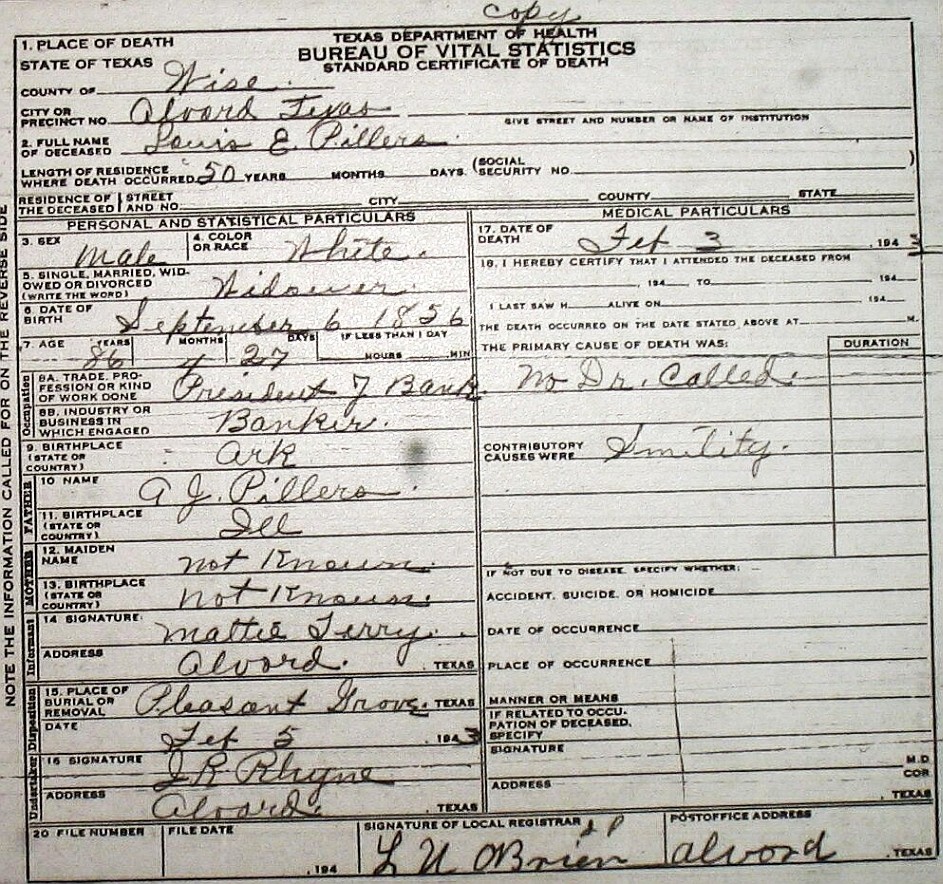 copy
TEXAS DEPARTMENT OF HEALTH
BUREAU OF VITAL STATISTICS
STANDARD CERTIFICATE OF DEATH
1. PLACE OF DEATH
STATE OF TEXAS
COUNTY OF Wise
CITY OR PRECINCT NO. Alvord Texas
GIVE STREET AND NUMBER OR NAME OF INSTITUTION
2. FULL NAME OF DECEASED Louis E. Pillers
LENGTH OF RESIDENCE WHERE DEATH OCCURRED 50 YEARS MONTHS DAYS (SOCIAL SECURITY NO. )
RESIDENCE OF THE DECEASED STREET AND NO. CITY COUNTY STATE
PERSONAL AND STATISTICAL PARTICULARS
3. SEX Male
4. COLOR OR RACE White.
5. SINGLE, MARRIED, WIDOWED OR DIVORCED (WRITE THE WORD) Widower.
6. DATE OF BIRTH September 6 1856
7. AGE YEARS 86 MONTHS 4 DAYS 27 IF LESS THAN 1 DAY HOURS MIN
Occupation
8A. TRADE, PROFESSION OR KIND OF WORK DONE President of Bank
8B. INDUSTRY OR BUSINESS IN WHICH ENGAGED Banker.
9. BIRTHPLACE (STATE OR COUNTRY) Ark
FATHER
10 NAME A J. Pillers.
11. BIRTHPLACE (STATE OR COUNTRY) Ill
MOTHER
12. MAIDEN NAME not Known.
13. BIRTHPLACE (STATE OR COUNTRY) not Known.
Informant
14 SIGNATURE Mattie Terry.
ADDRESS Alvord. , TEXAS
Disposition
15. PLACE OF BURIAL OR REMOVAL Pleasant Grove. TEXAS
DATE Feb 5 , 1943
Undertaker
16 SIGNATURE J R Rhyne
ADDRESS Alvord. , TEXAS
MEDICAL PARTICULARS
17. DATE OF DEATH Feb 3 , 1943
18. I HEREBY CERTIFY THAT I ATTENDED THE DECEASED FROM
, 194 TO 194
I LAST SAW H ALIVE ON 194
THE DEATH OCCURRED ON THE DATE STATED ABOVE AT M.
THE PRIMARY CAUSE OF DEATH WAS: DURATION
No Dr. Called.
CONTRIBUTORY CAUSES WERE Sinility.
IF NOT DUE TO DISEASE, SPECIFY WHETHER:
ACCIDENT, SUICIDE, OR HOMICIDE
DATE OF OCCURRENCE
PLACE OF OCCURRENCE
MANNER OR MEANS
IF RELATED TO OCCUPATION OF DECEASED, SPECIFY
SIGNATURE M.D COR.
ADDRESS , TEXAS
20 FILE NUMBER
FILE DATE , 194
SIGNATURE OF LOCAL REGISTRAR L U OBrien
POSTOFFICE ADDRESS Alvord , TEXAS
NOTE THE INFORMATION CALLED FOR ON THE REVERSE SIDE